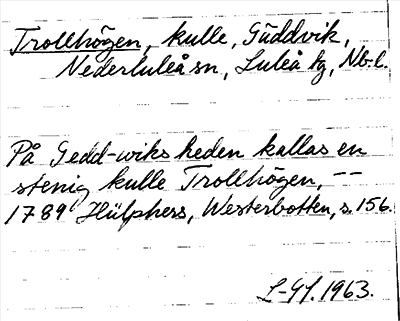 Trollhögen, kulle, Gäddvik,
Nederluleå sn, Luleå kg, Nb. l.
På Gedd-wiks heden kallas en
stenig kulle Trollhögen, --
1789 Hülphers, Westerbotten, s. 156.
1963.